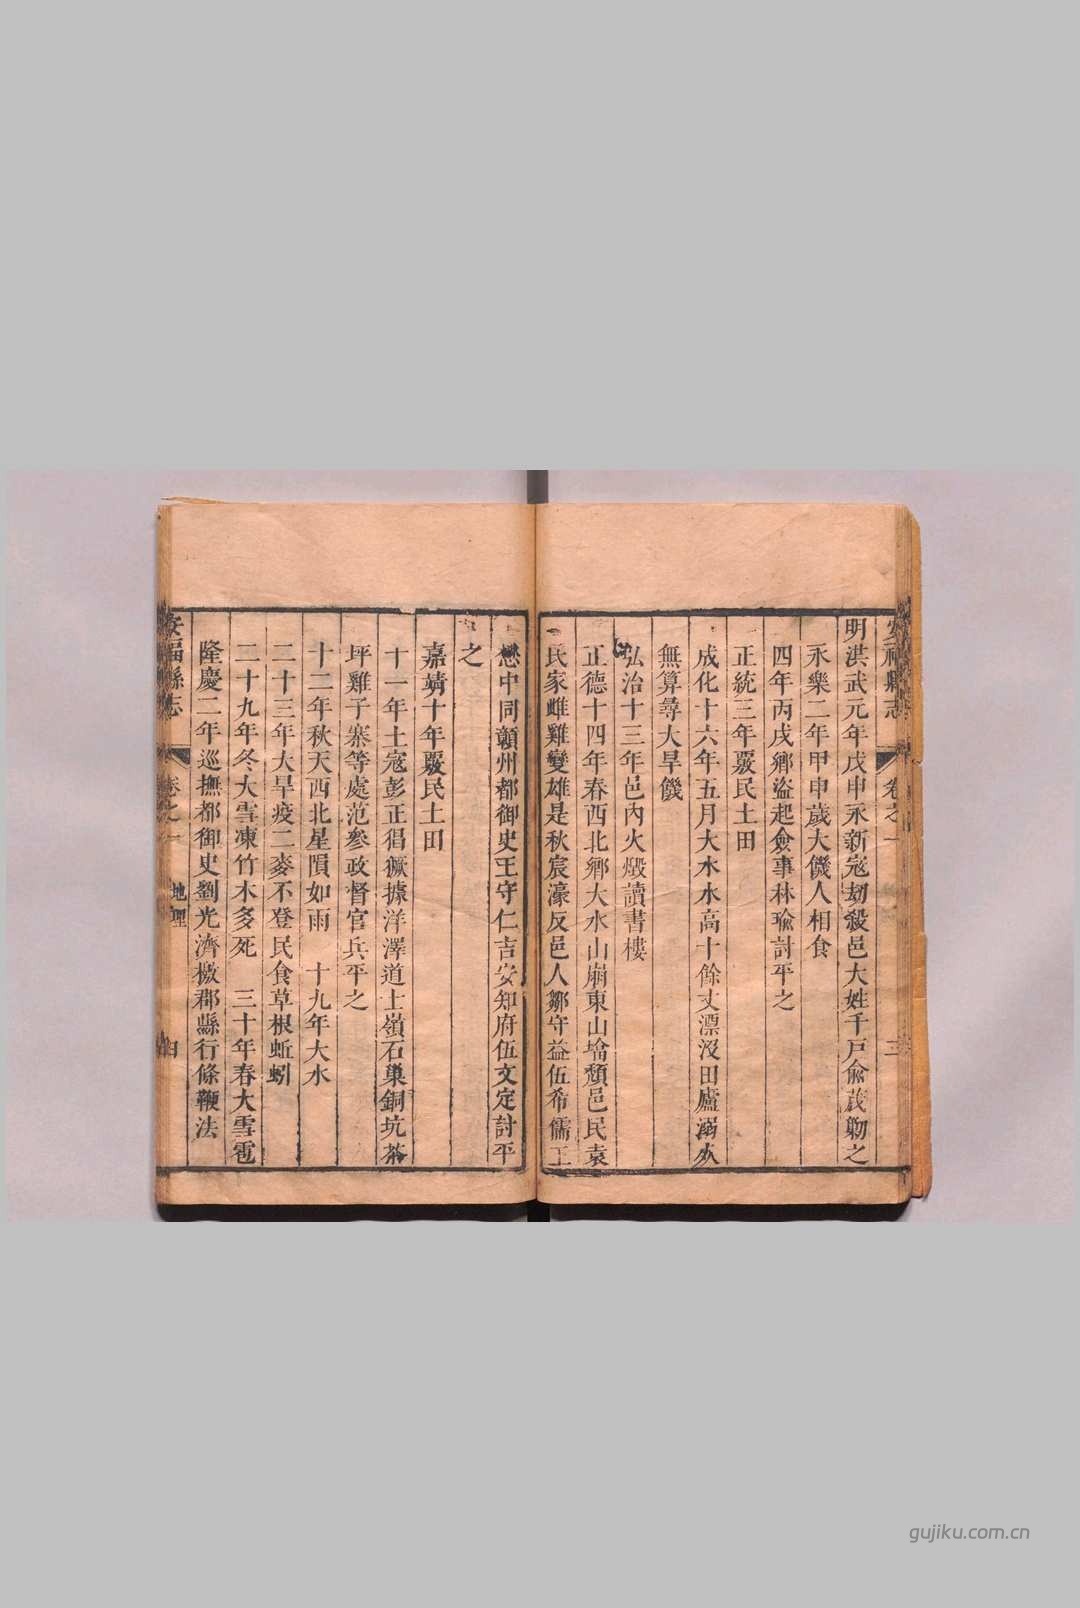 安福縣志 卷之一 三
明洪武元年戊申永新寇刼殺邑大姓千戸俞茂勦之
永樂二年甲申歲大饑人相食
四年丙戌鄉盜起僉事林瑜討平之
正統三年覈民土田
成化十六年五月大水水高十餘丈漂没田廬溺人
無算尋大旱饑
弘治十三年邑內火燬讀書樓
正德十四年春西北鄉大水山崩東山墖頽邑民袁
民家雌雞變雄是秋宸濠反邑人鄒守益伍希儒王
懋中同贑州都御史王守仁吉安知府伍文定討平
之
嘉靖十年覈民土田
十一年土寇彭正倡獗據洋澤道士嶺石巢銅坑茶
坪雞子寨等處范參政督官兵平之
十二年秋天西北星隕如雨 十九年大水
二十三年大旱疫二麥不登民食草根蚯蚓
二十九年冬大雪凍竹木多死 三十年春大雪雹
隆慶二年巡撫都御史劉光濟檄郡縣行條鞭法
安福縣志 卷之一 地理 四
gujiku.com.cn